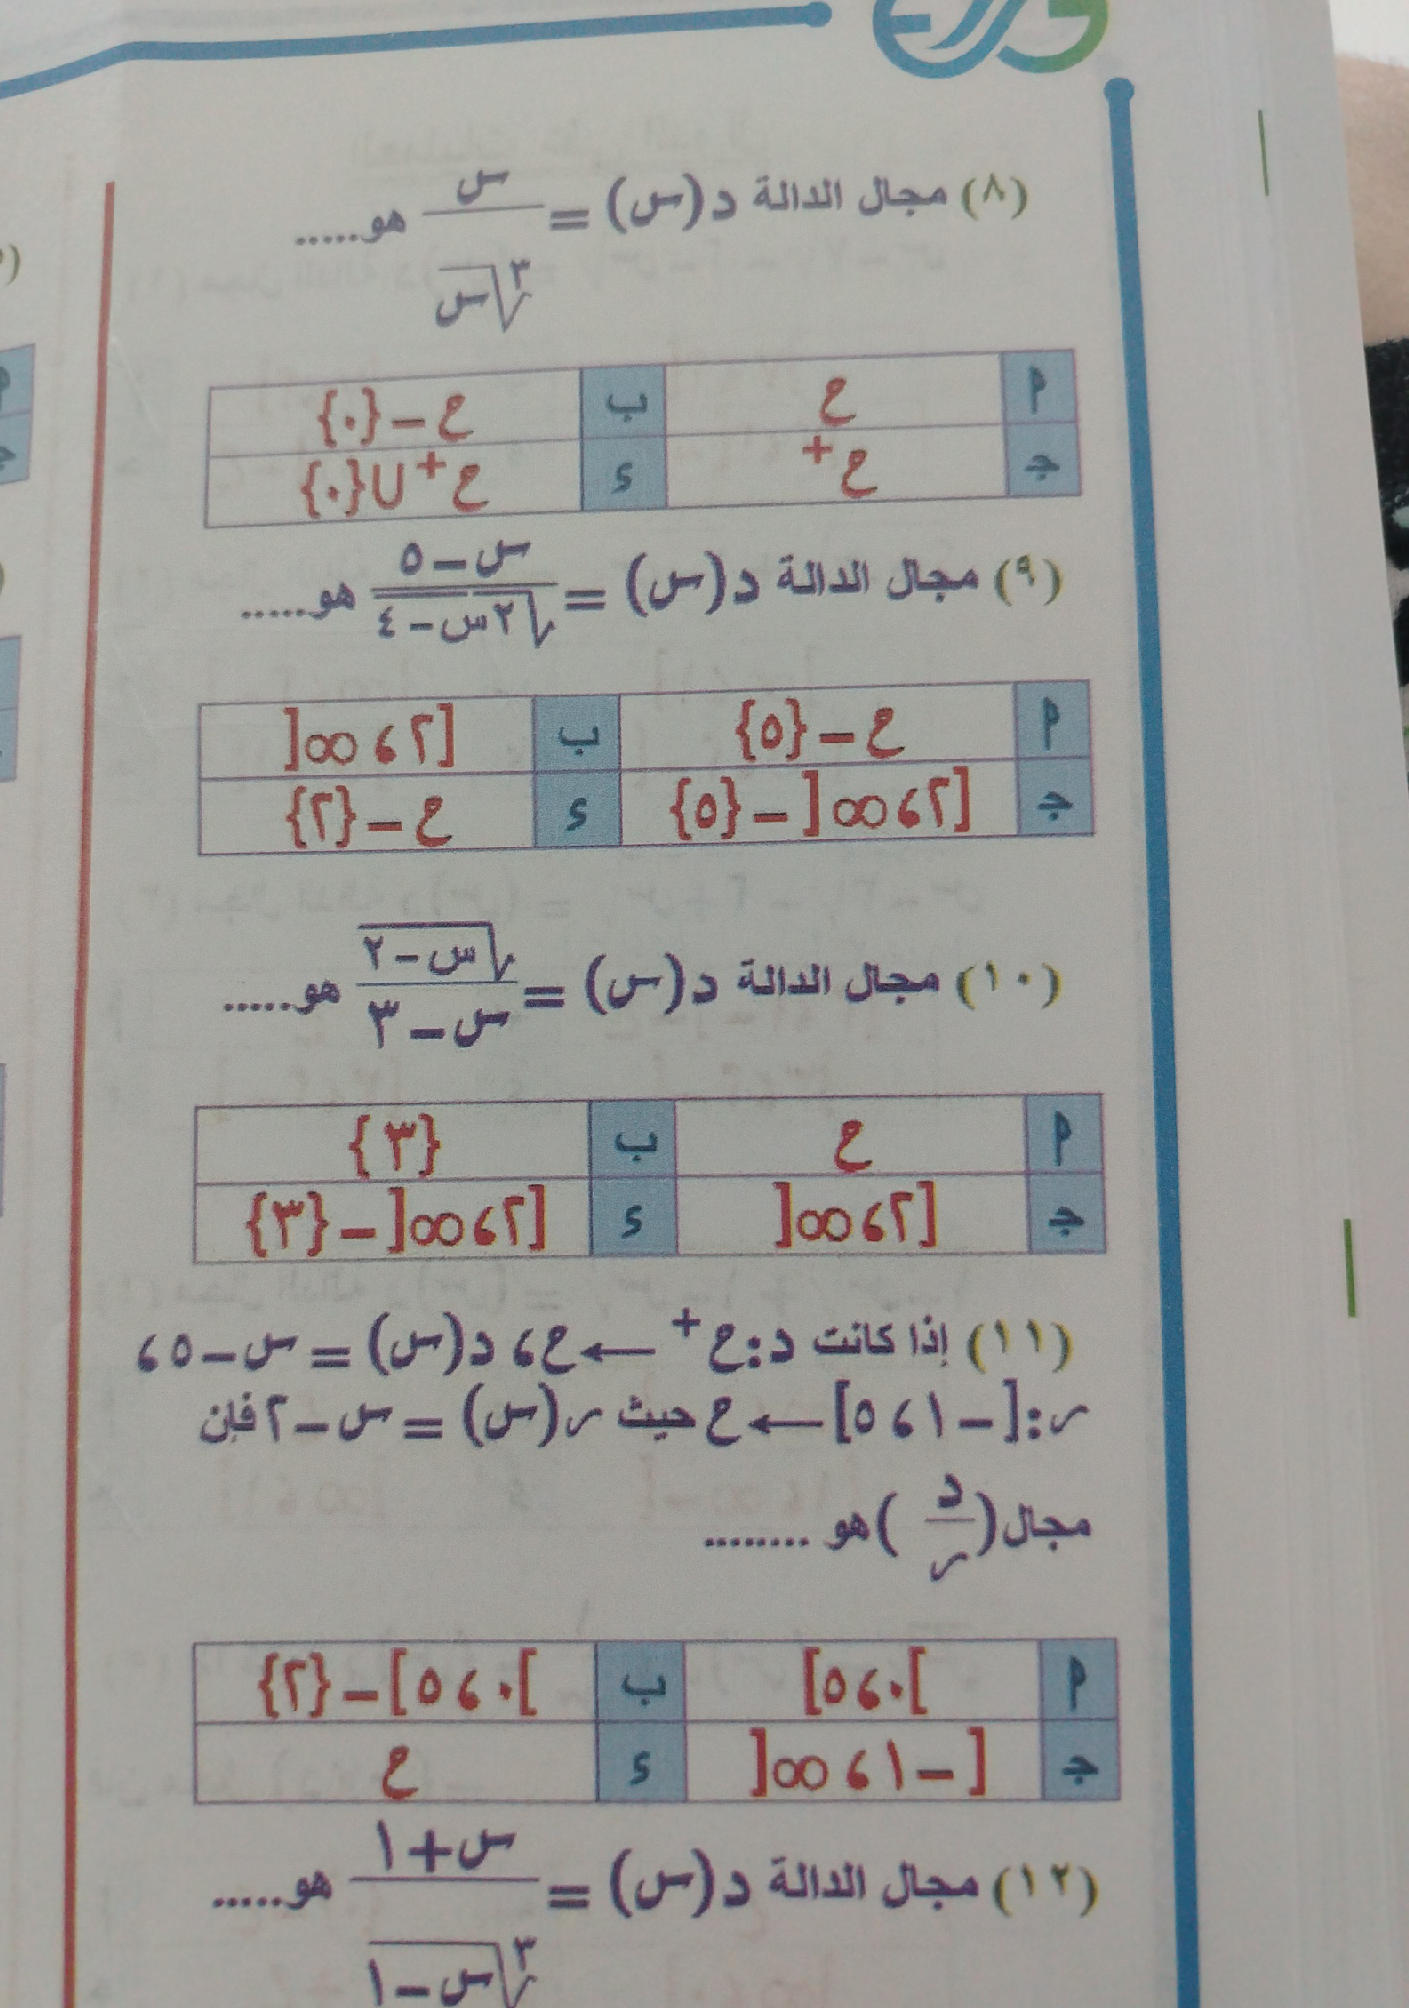 (٨) مجال الدالة د(س) = س / ∛س هو.....
أ ح ب ح – {٠}
ج ح+ د ح+ ∪ {٠}
(٩) مجال الدالة د(س) = س – ٥ / √(٢س – ٤) هو.....
أ ح – {٥} ب [٢ ، ∞[
ج [٢ ، ∞[ – {٥} د ح – {٢}
(١٠) مجال الدالة د(س) = √(س – ٢) / س – ٣ هو.....
أ ح ب {٣}
ج [٢ ، ∞[ د [٢ ، ∞[ – {٣}
(١١) إذا كانت د : ح+ ← ح ، د(س) = س – ٥ ،
ر : [– ١ ، ٥] ← ح حيث ر(س) = س – ٢ فإن
مجال (د / ر) هو ........
أ ]٠ ، ٥] ب ]٠ ، ٥] – {٢}
ج [– ١ ، ∞[ د ح
(١٢) مجال الدالة د(س) = س + ١ / ∛(س – ١) هو.....